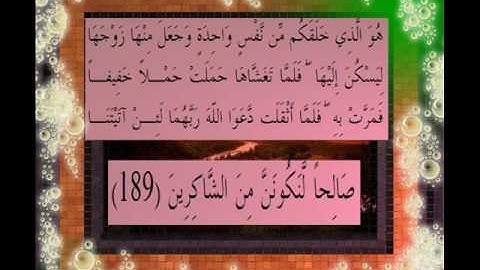 هُوَ الَّذِي خَلَقَكُم مِّن نَّفْسٍ وَاحِدَةٍ وَجَعَلَ مِنْهَا زَوْجَهَا
لِيَسْكُنَ إِلَيْهَا ۖ فَلَمَّا تَغَشَّاهَا حَمَلَتْ حَمْلًا خَفِيفًا
فَمَرَّتْ بِهِ ۖ فَلَمَّا أَثْقَلَت دَّعَوَا اللَّهَ رَبَّهُمَا لَئِنْ آتَيْتَنَا
صَالِحاً لَّنَكُونَنَّ مِنَ الشَّاكِرِينَ (189)